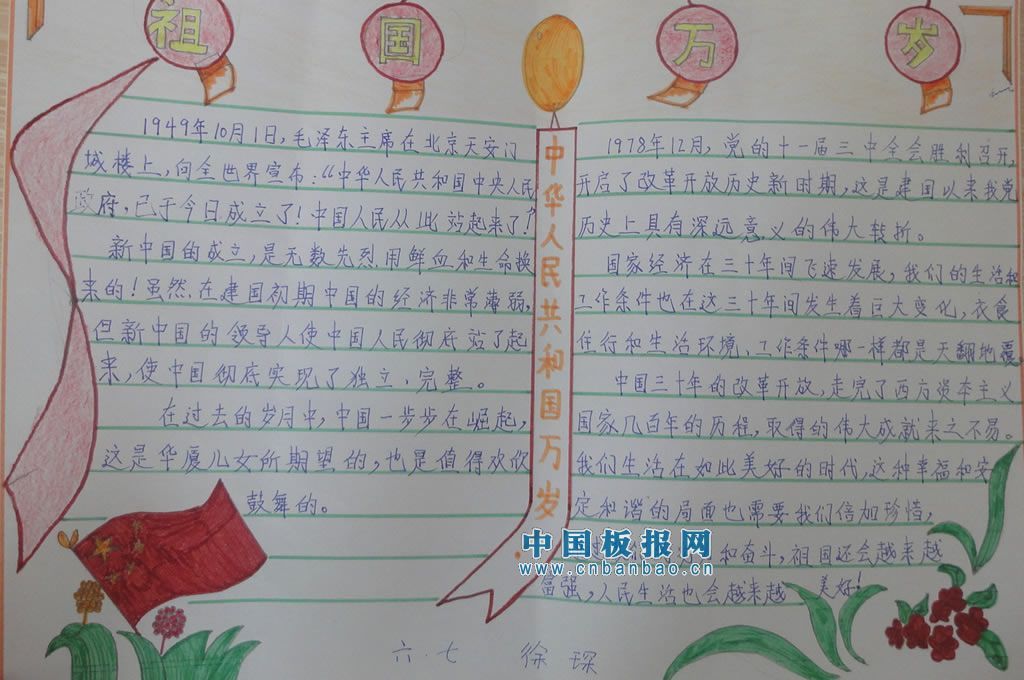 祖国万岁
1949年10月1日,毛泽东主席在北京天安门
城楼上,向全世界宣布:“中华人民共和国中央人民
政府,已于今日成立了!中国人民从此站起来了?
新中国的成立,是无数先烈用鲜血和生命换
来的!虽然,在建国初期中国的经济非常薄弱,
但新中国的领导人使中国人民彻底站了起
来,使中国彻底实现了独立、完整。
在过去的岁月中,中国一步步在崛起,
这是华厦儿女所期望的,也是值得欢欣
鼓舞的。
中华人民共和国万岁
1978年12月,党的十一届三中全会胜利召开,
开启了改革开放历史新时期,这是建国以来我党
历史上具有深远意义的伟大转折。
国家经济在三十年间飞速发展,我们的生活和
工作条件也在这三十年间发生着巨大变化,衣食
住行和生活环境、工作条件哪一样都是天翻地覆。
中国三十年的改革开放,走完了西方资本主义
国家几百年的历程,取得的伟大成就来之不易。
我们生活在如此美好的时代,这种幸福和安
定和谐的局面也需要我们倍加珍惜,
和奋斗,祖国还会越来越
富强,人民生活也会越来越 美好!
中国板报网
www.cnbanbao.cn
六.七 徐琛